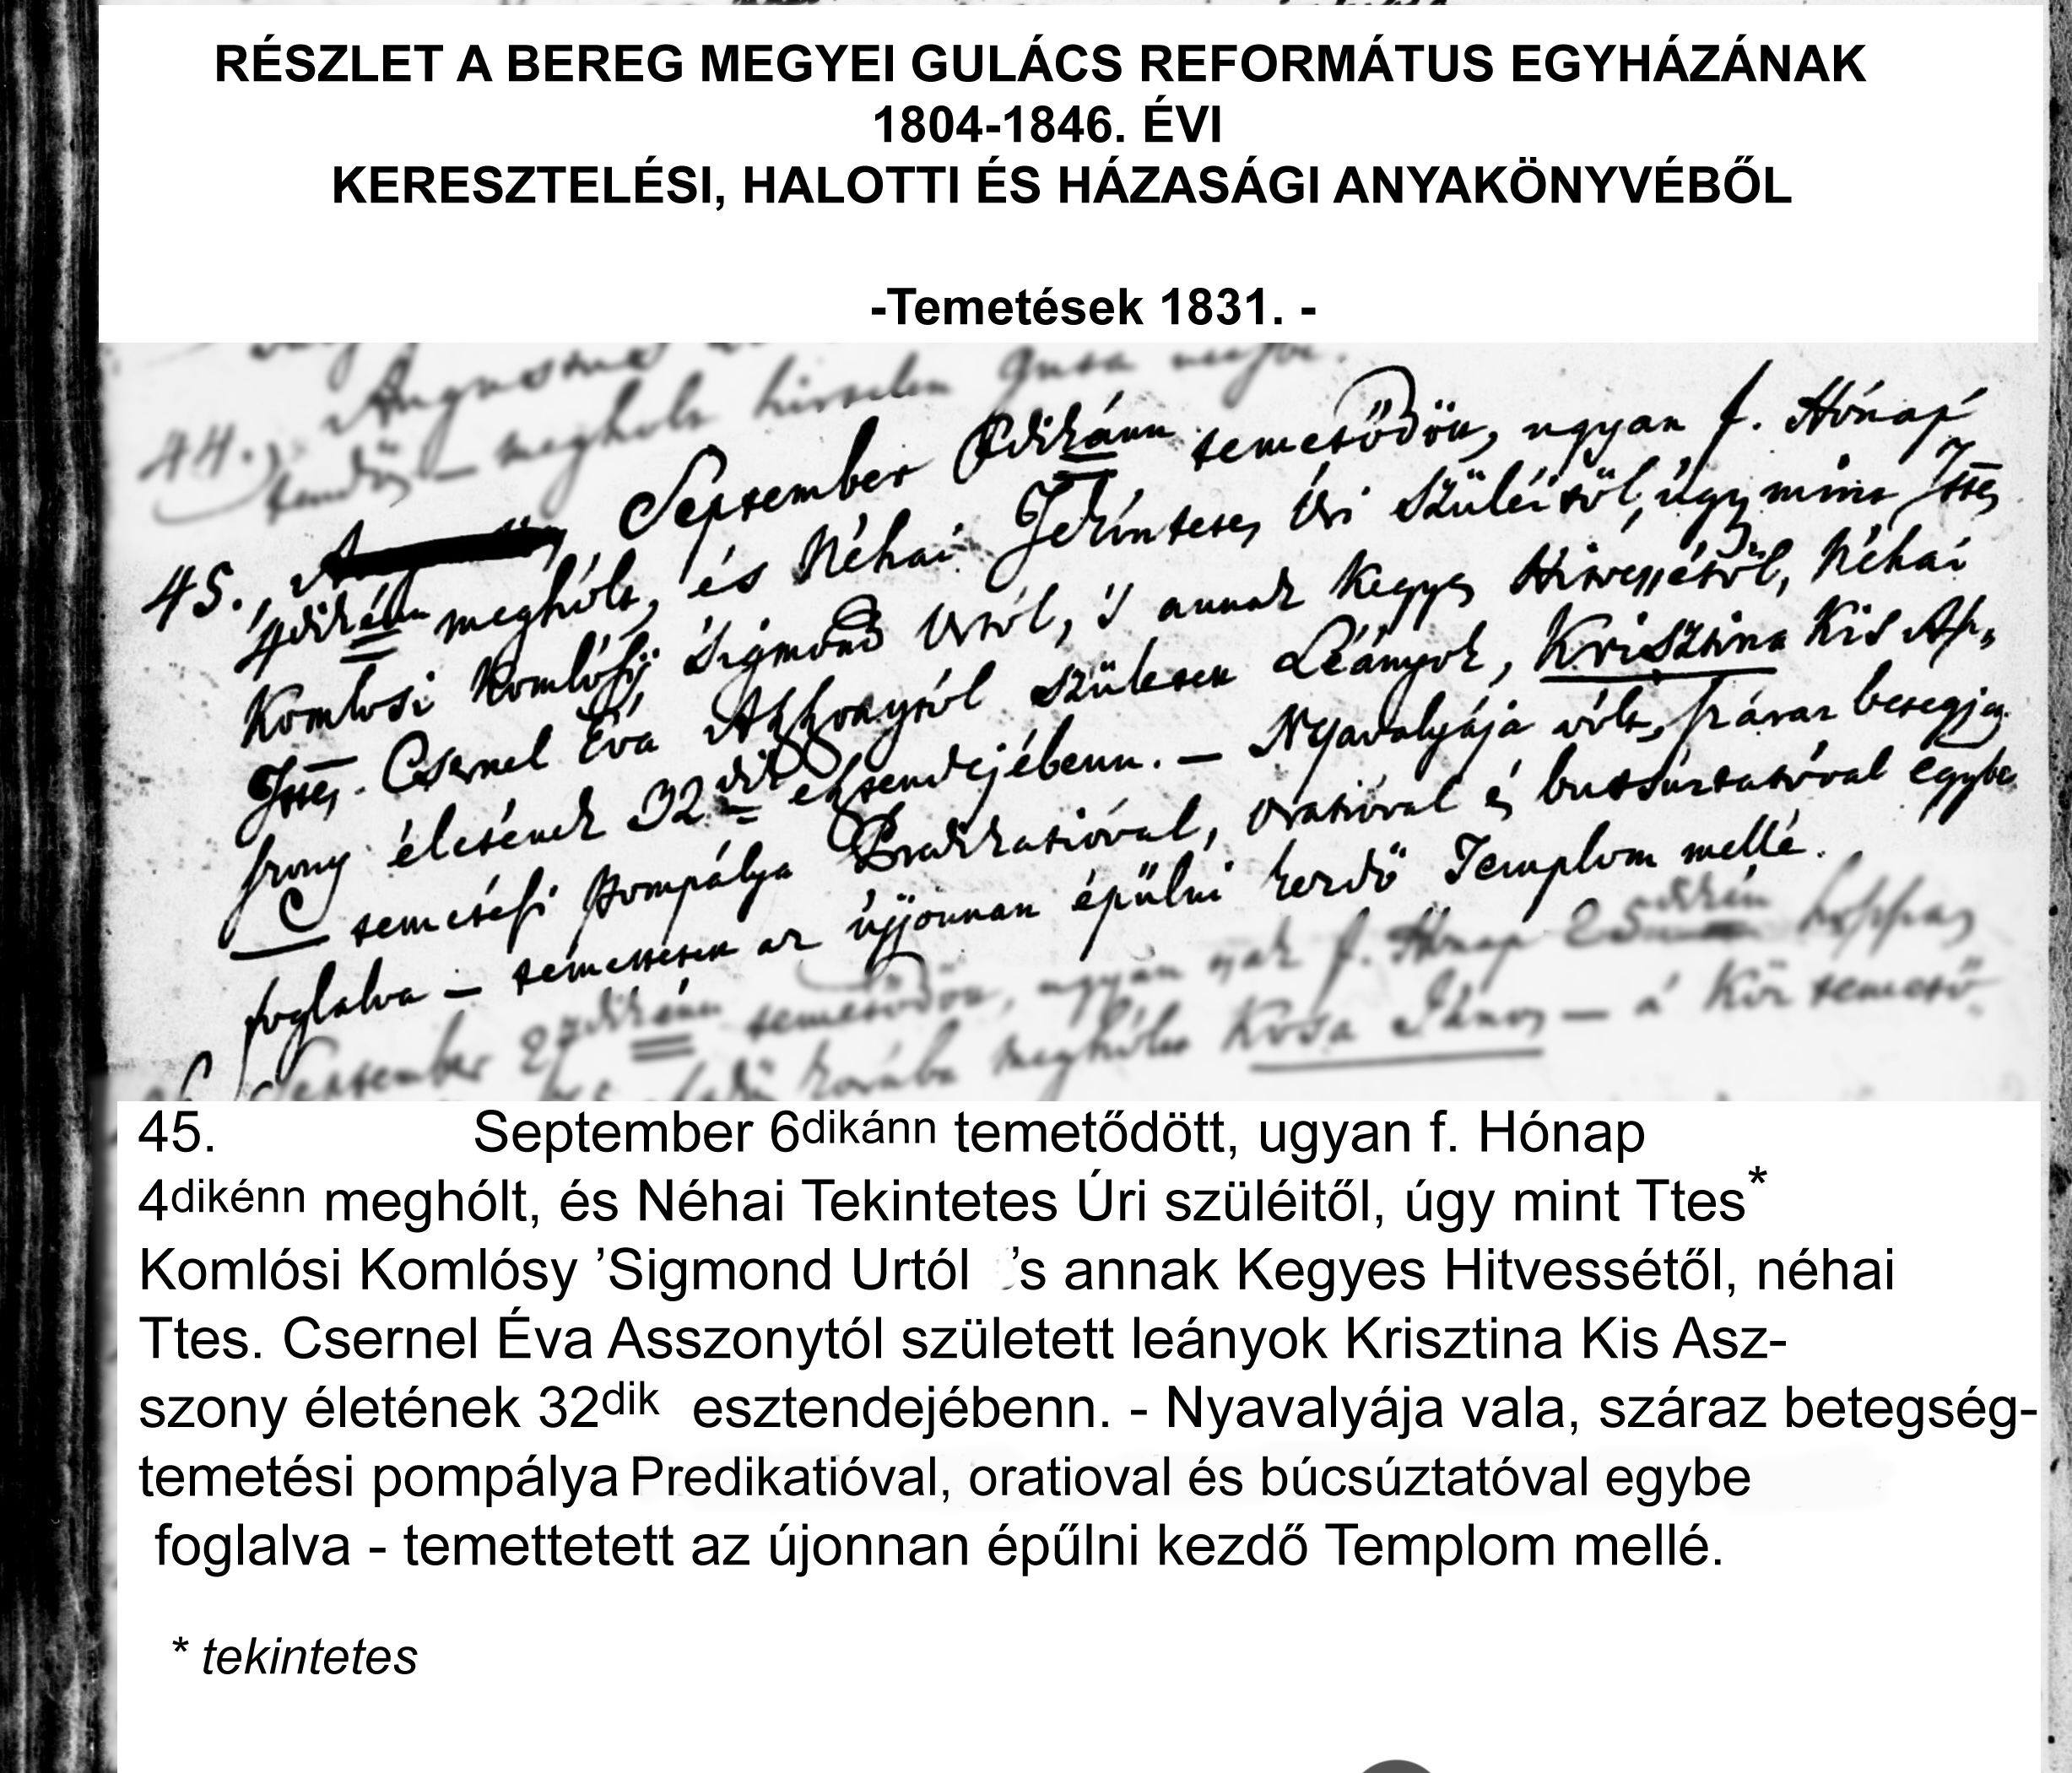 RÉSZLET A BEREG MEGYEI GULÁCS REFORMÁTUS EGYHÁZÁNAK
1804-1846. ÉVI
KERESZTELÉSI, HALOTTI ÉS HÁZASÁGI ANYAKÖNYVÉBŐL
-Temetések 1831. -
44., Augustus
megholt hirtelen Guta
45., September 6dikánn temetődött, ugyan f. Hónap
4dikénn meghólt, és Néhai Tekíntetes Úri Szüléitöl, úgy mint Ttes
Komlosi Komlósÿ 'Sigmond Urtól, 's annak Kegyes Hitvessétöl, Néhai
Ttes. Csernel Éva Aszszonytól születtett Léányok, Krisztina Kis Asz„
szony életének 32dik esztendejébenn. — Nyavalyája vólt, száraz betegség
temetési pompálya Praedikatióval, oratióval és butsúztatóval egybe
foglalva — temettetett az újjonnan épűlni kezdő Templom mellé.
September 27dikénn temetődött, ugyan f. Hónap 25dikén
korába meghólt Kósa János — a' Köz temető
45. September 6dikánn temetődött, ugyan f. Hónap
4dikénn meghólt, és Néhai Tekintetes Úri szüléitől, úgy mint Ttes*
Komlósi Komlósy ’Sigmond Urtól ’s annak Kegyes Hitvessétől, néhai
Ttes. Csernel Éva Asszonytól született leányok Krisztina Kis Asz-
szony életének 32dik esztendejébenn. - Nyavalyája vala, száraz betegség-
temetési pompálya Predikatióval, oratioval és búcsúztatóval egybe
foglalva - temettetett az újonnan épűlni kezdő Templom mellé.
* tekintetes